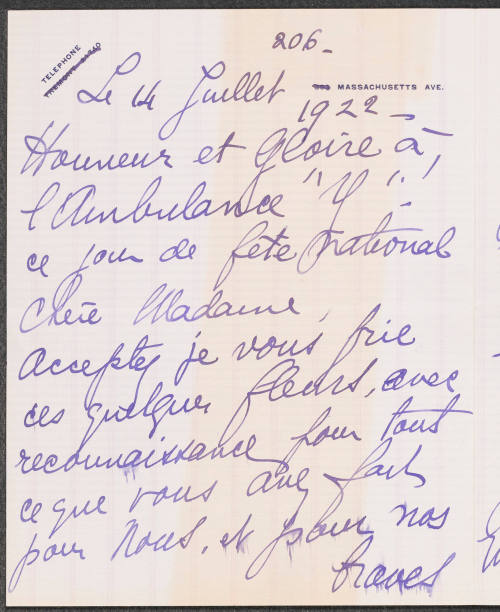 206-
TELEPHONE
MASSACHUSETTS AVE.
Le 14 Juillet
1922-
Honneur et Gloire à,
l'Ambulance "Y"!
ce jour de fête national
Chère Madame,
Acceptez je vous prie
ces quelques fleurs, avec
reconnaissance pour tout
ce que vous avez fait
pour nous, et pour nos
braves